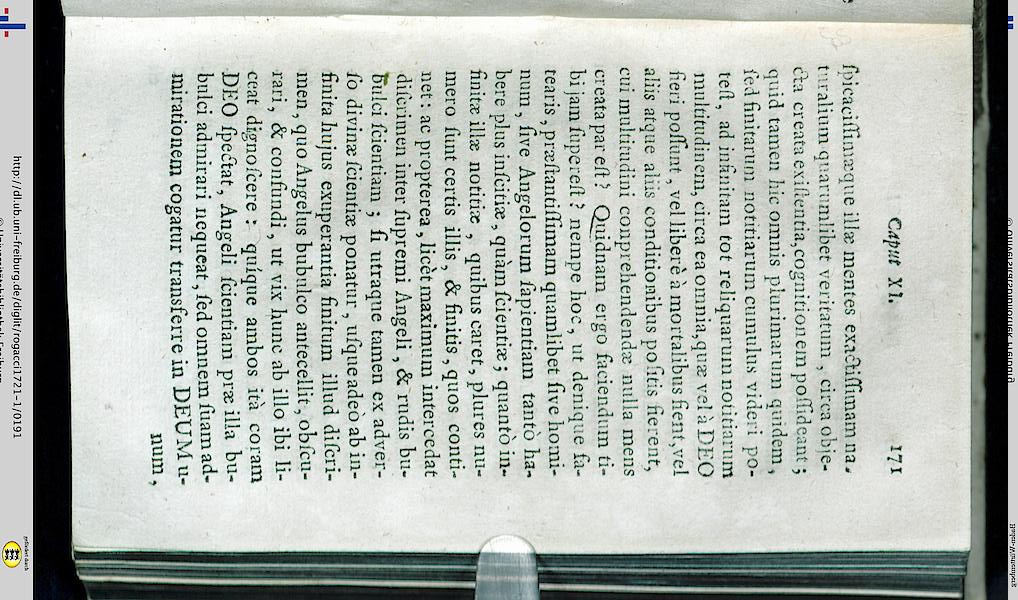 Caput XI. 171
ſpicaciſſimæque illæ mentes exactiſſimam na-
turalium quarumlibet veritatum, circa obje-
cta creata exiſtentia, cognitionem poſſideant;
quid tamen hic omnis plurimarum quidem,
ſed finitarum notitiarum cumulus videri po-
teſt, ad infinitam tot reliquarum notitiarum
multitudinem, circa ea omnia, quæ vel à DEO
fieri poſſunt, vel liberè à mortalibus fient, vel
aliis atque aliis conditionibus poſitis fierent,
cui multitudini conprehendendæ nulla mens
creata par eſt? Quidnam ergo faciendum ti-
bi jam ſupereſt? nempe hoc, ut denique fa-
tearis, præſtantiſſimam quamlibet ſive homi-
num, ſive Angelorum ſapientiam tantò ha-
bere plus inſcitiæ, quàm ſcientiæ; quantò in-
finitæ illæ notitiæ, quibus caret, plures nu-
mero ſunt certis illis, & finitis, quos conti-
net: ac propterea, licèt maximum intercedat
diſcrimen inter ſupremi Angeli, & rudis bu-
bulci ſcientiam; ſi utraque tamen ex adver-
ſo divinæ ſcientiæ ponatur, uſqueadeo ab in-
finita hujus exuperantia finitum illud diſcri-
men, quo Angelus bubulco antecellit, obſcu-
rari, & confundi, ut vix hunc ab illo ibi li-
ceat dignoſcere: quique ambos ità coram
DEO ſpectat, Angeli ſcientiam præ illa bu-
bulci admirari nequeat, ſed omnem ſuam ad-
mirationem cogatur transferre in DEUM u-
num,
http://dl.ub.uni-freiburg.de/diglit/rogacci1721-1/0191
© Universitätsbibliothek Freiburg
gefördert durch